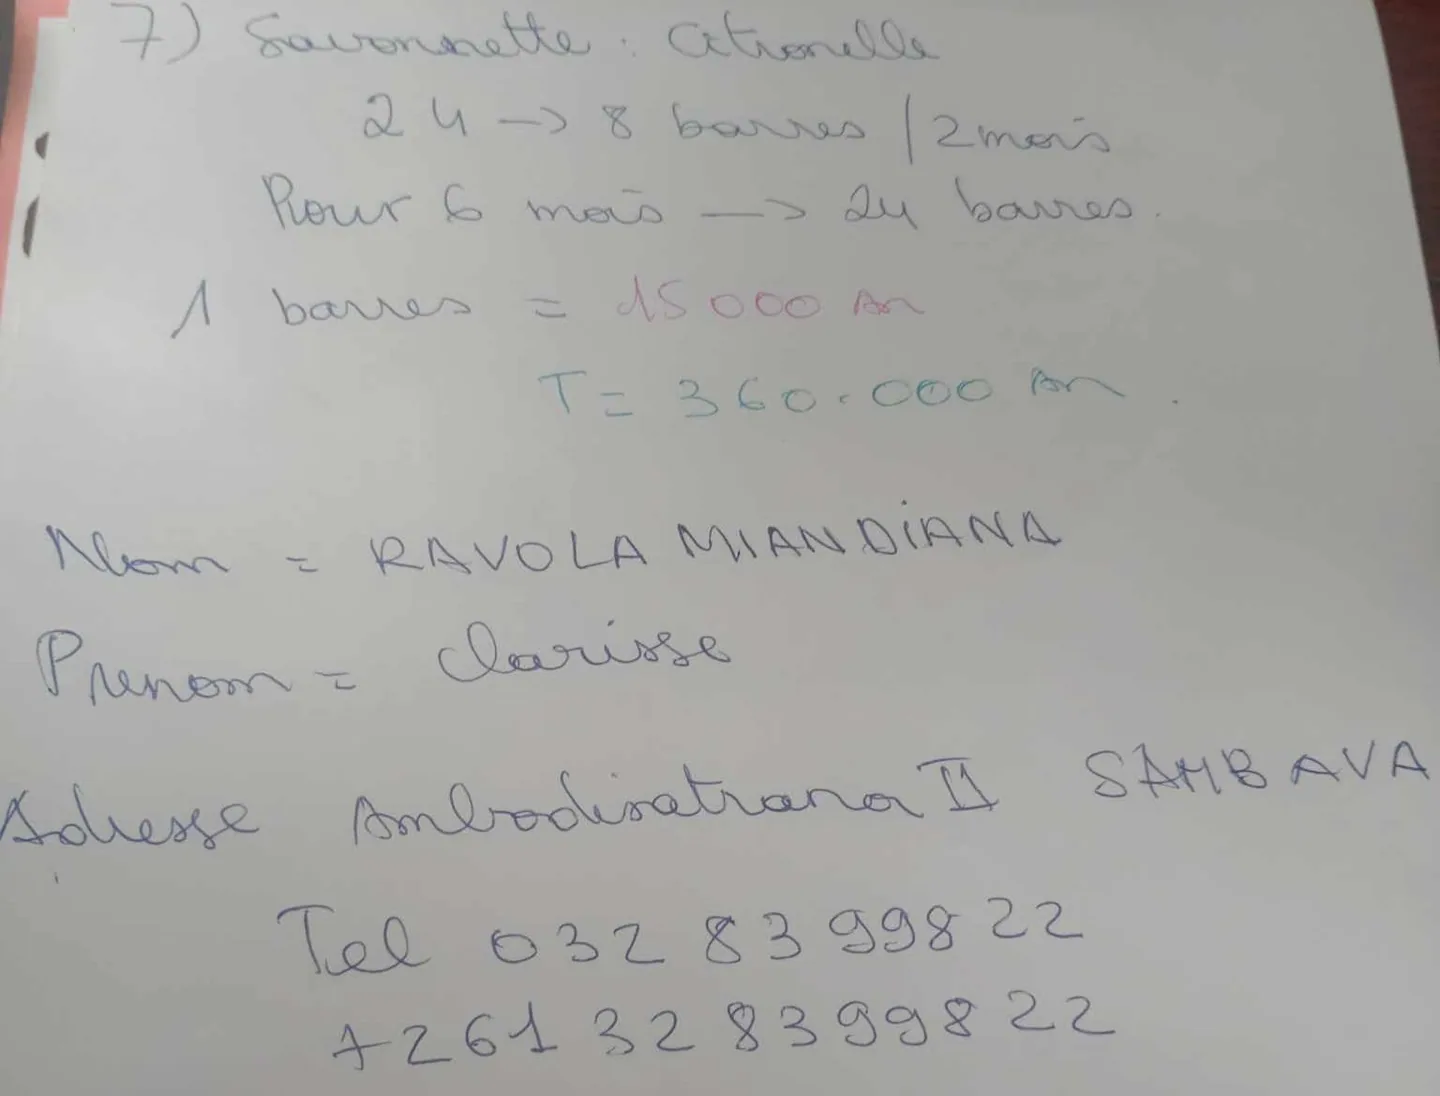 7) Savonnette : Citronelle
24 -> 8 barres / 2 mois
Pour 6 mois -> 24 barres.
1 barres = 15 000 Ar
T = 360.000 Ar.
Nom = RAVOLA MIANDIANA
Prenom = Clarisse
Adresse Ambodisatrana II SAMBAVA
Tel 032 83 998 22
+261 32 83 998 22